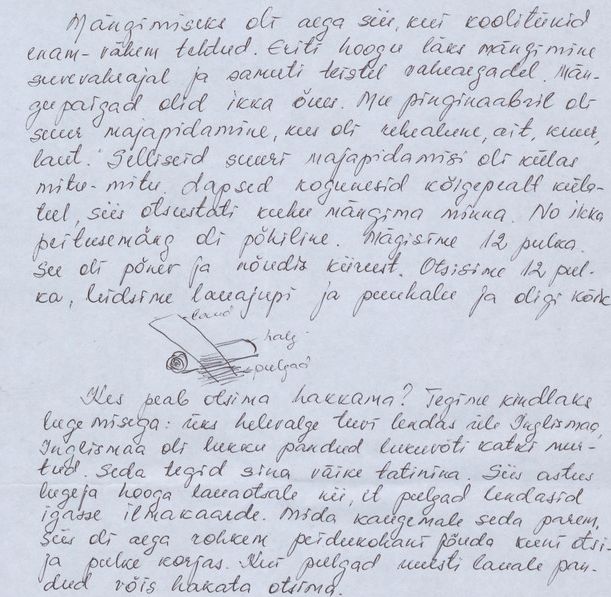 Mängimiseks oli aega siis, kui koolitükid
enam-vähem tehtud. Eriti hoogu läks mängimine
suvevaheajal ja samuti teistel vaheaegadel. Män-
gupaigad olid ikka õues. Mu pinginaabril oli
suur majapidamine, kus oli rehealune, ait, kuur,
laut. Selliseid suuri majapidamisi oli külas
mitu-mitu. Lapsed kogunesid kõigepealt küla-
teel, siis otsustati kuhu mängima minna. No ikka
peitusemäng oli põhiline. Mägisime 12 pulka.
See oli põnev ja nõudis kiirust. Otsisime 12 pul-
ka, leidsime lauajupi ja puuhalu ja oligi kõik
laud
halg
pulgad
Kes peab otsima hakkama? Tegime kindlaks
lugemisega: üks helevalge tuvi lendas üle Inglismaa,
Inglismaa oli lukku pandud lukuvõti katki mur-
tud. Seda tegid sina väike tatinina. Siis astus
lugeja hooga lauaotsale nii, et pulgad lendasid
igasse ilmakaarde. Mida kaugemale seda parem,
siis oli aega rohkem peidukohani jõuda kuni otsi-
ja pulke korjas. Kui pulgad uuesti lauale pan-
dud võis hakata otsima.